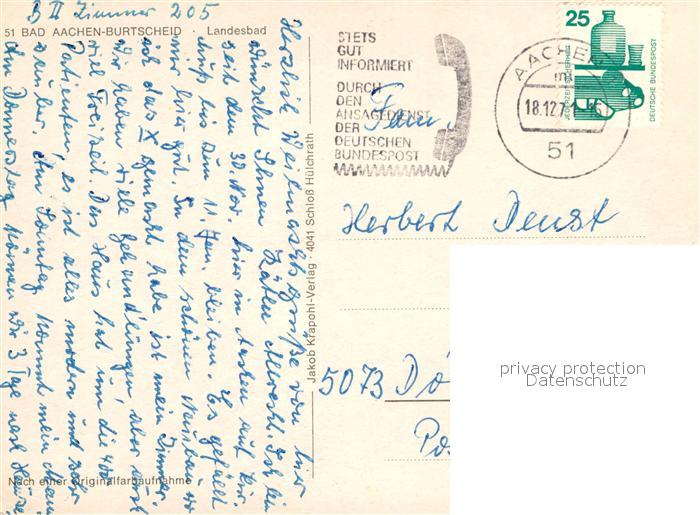 B II Zimmer 205
51 BAD AACHEN-BURTSCHEID · Landesbad
Herzlich Weihnachtsgrüße von hier
wünscht Ihnen Käten Albrecht. Ich bin
seit dem 30. Nov. hier in Aachen auf Kur.
muß bis zum 11. Jan. bleiben. Es gefällt
mir hier gut. In dem schönen Neubau wo
ich das X gemacht habe ist mein Zimmer.
Wir haben viele Behandlungen, aber auch
viel Freizeit. Das Haus hat um die 400
Patienten, es ist alles modern und sehr
sauber. Am Sonntag kommt mein Mann
Am Donnerstag können wir 3 Tage nach Hause
Nach einer Originalfarbaufnahme
Jakob Krapohl-Verlag · 4041 Schloß Hülchrath
STETS
GUT
INFORMIERT
DURCH
DEN
ANSAGEDIENST
DER
DEUTSCHEN
BUNDESPOST
AACHEN
18.12.7
51
25
JEDERZEIT SICHERHEIT
DEUTSCHE BUNDESPOST
Fam.
Herbert Denst
5073 Dö
Po
privacy protection
Datenschutz